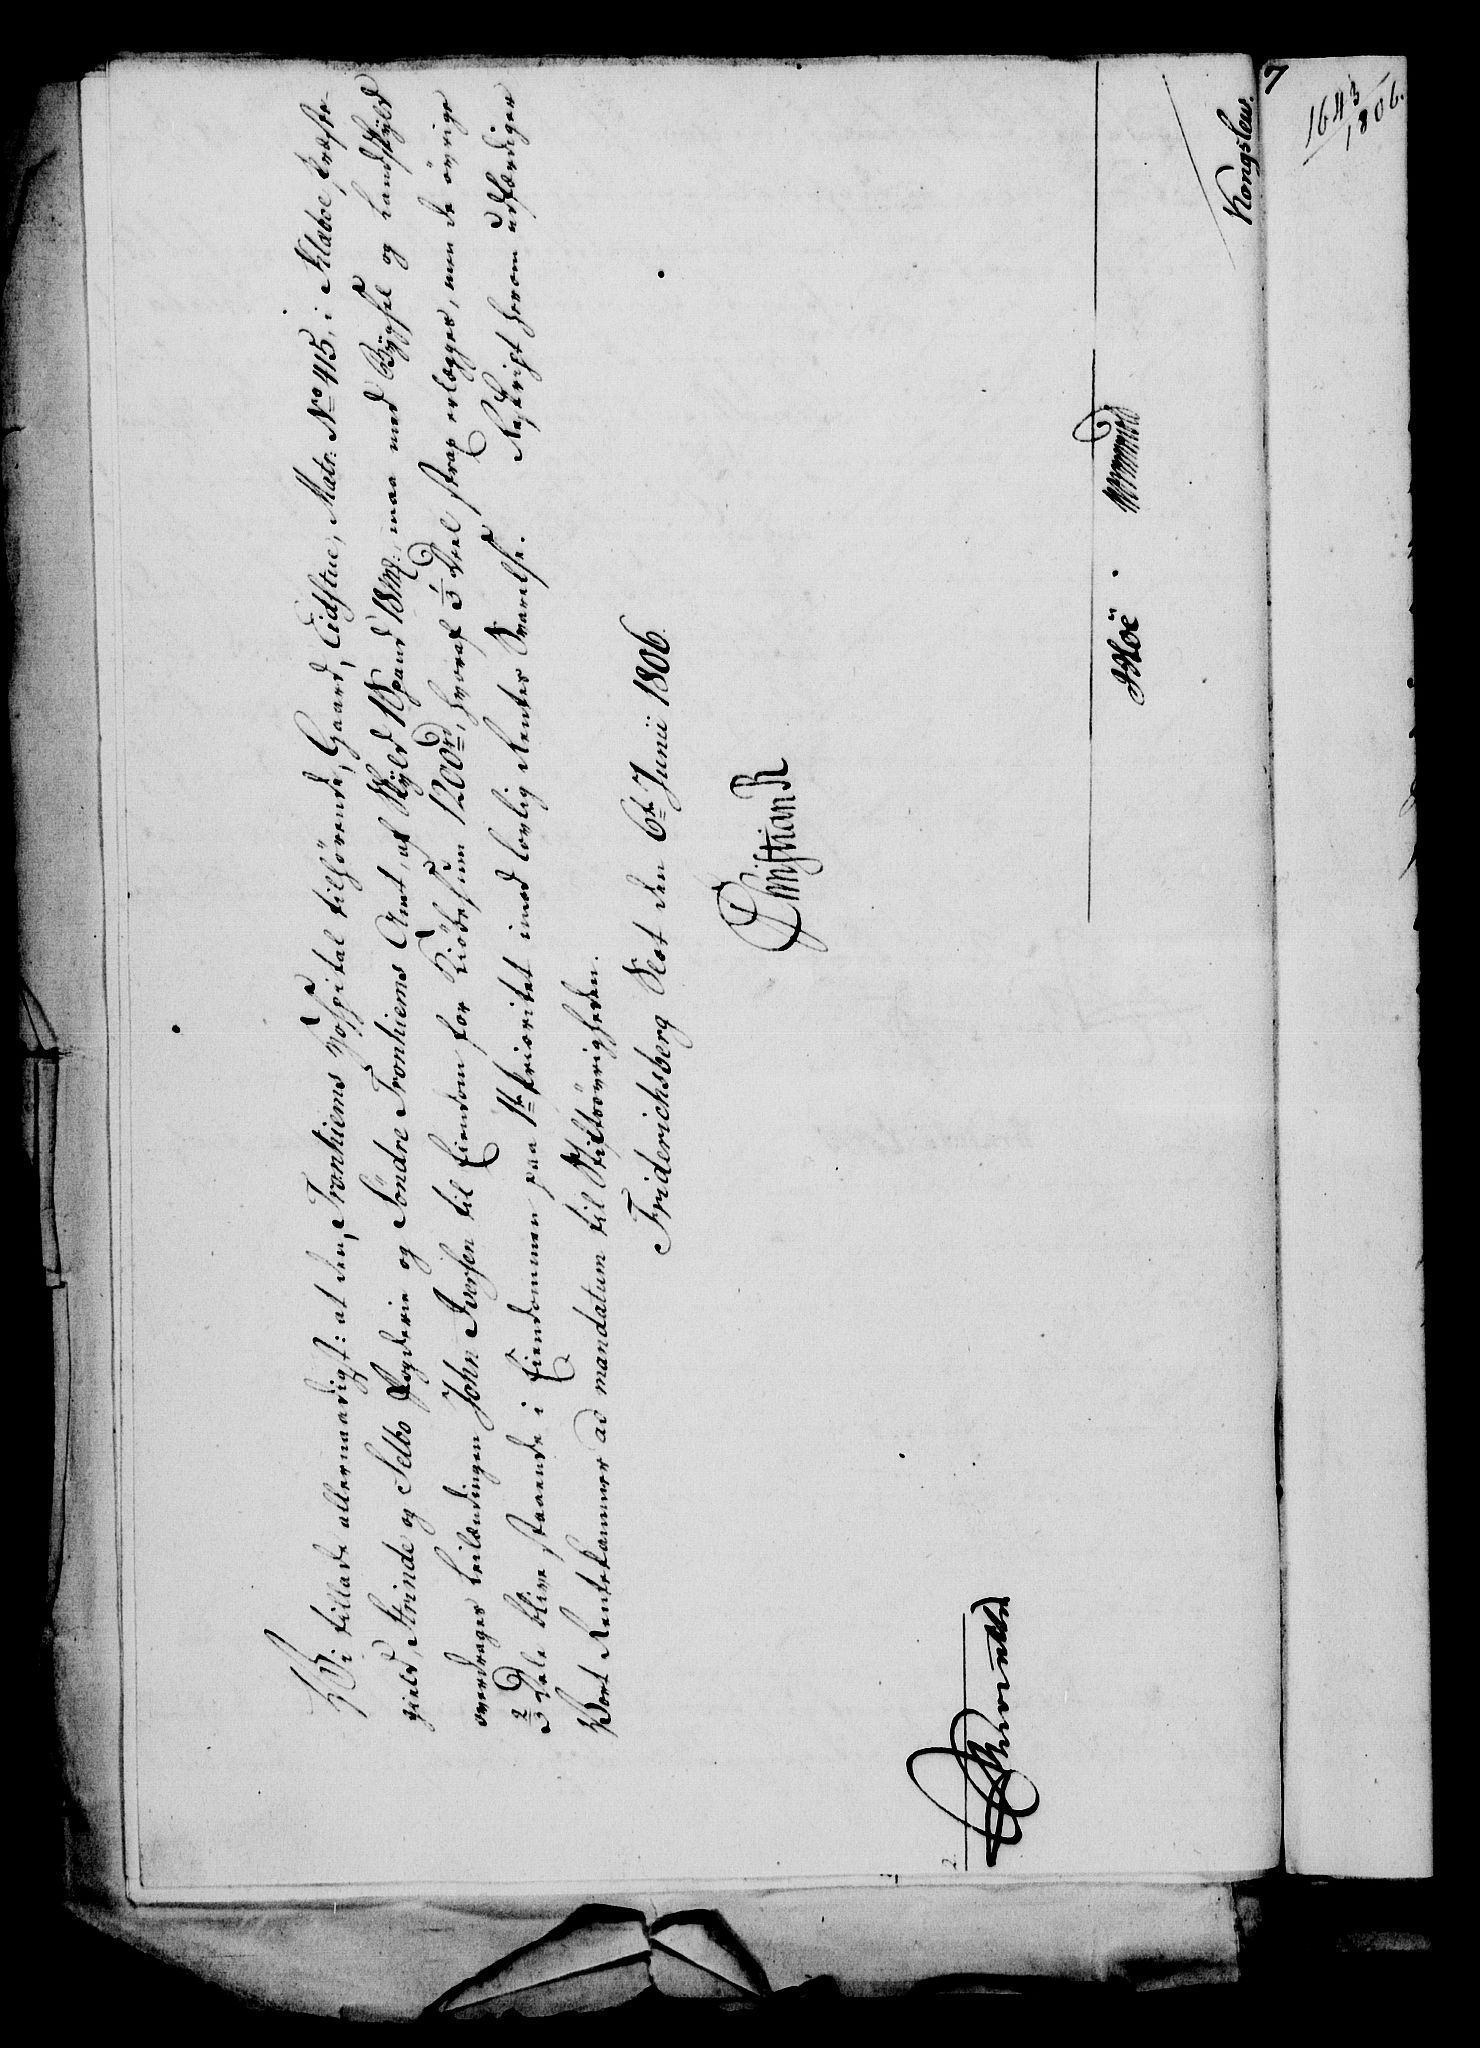 Vi tillade allernaadigst: at den, Tronhiems Hospital tilhörende, Gaard, Eidstue, Matr. No 415, i Klæboe Præste-
gield, Strinde og Selbo Fogderie og Söndre Tronhiems Amt, af Skyld 1 Spand 18 Mk:, maa med Bÿgsel og Landskyld
overdrages Leilændingen John Iversen til Eiendom for Kiöbesum 1200 rd, hvoraf 1/3 Deel strax erlægges, men de övrige
2/3 Dele blive staaende i Eiendommen paa 1te Prioritet imod lovlig Renters Svarelse. Reskript herom udfærdiger
Vort Rentekammer ad mandatum til Stiftsövrigheden.
Friderichsberg Slot den 6te Junii 1806.
Christian R
Kongslew.
7
1643/1806.